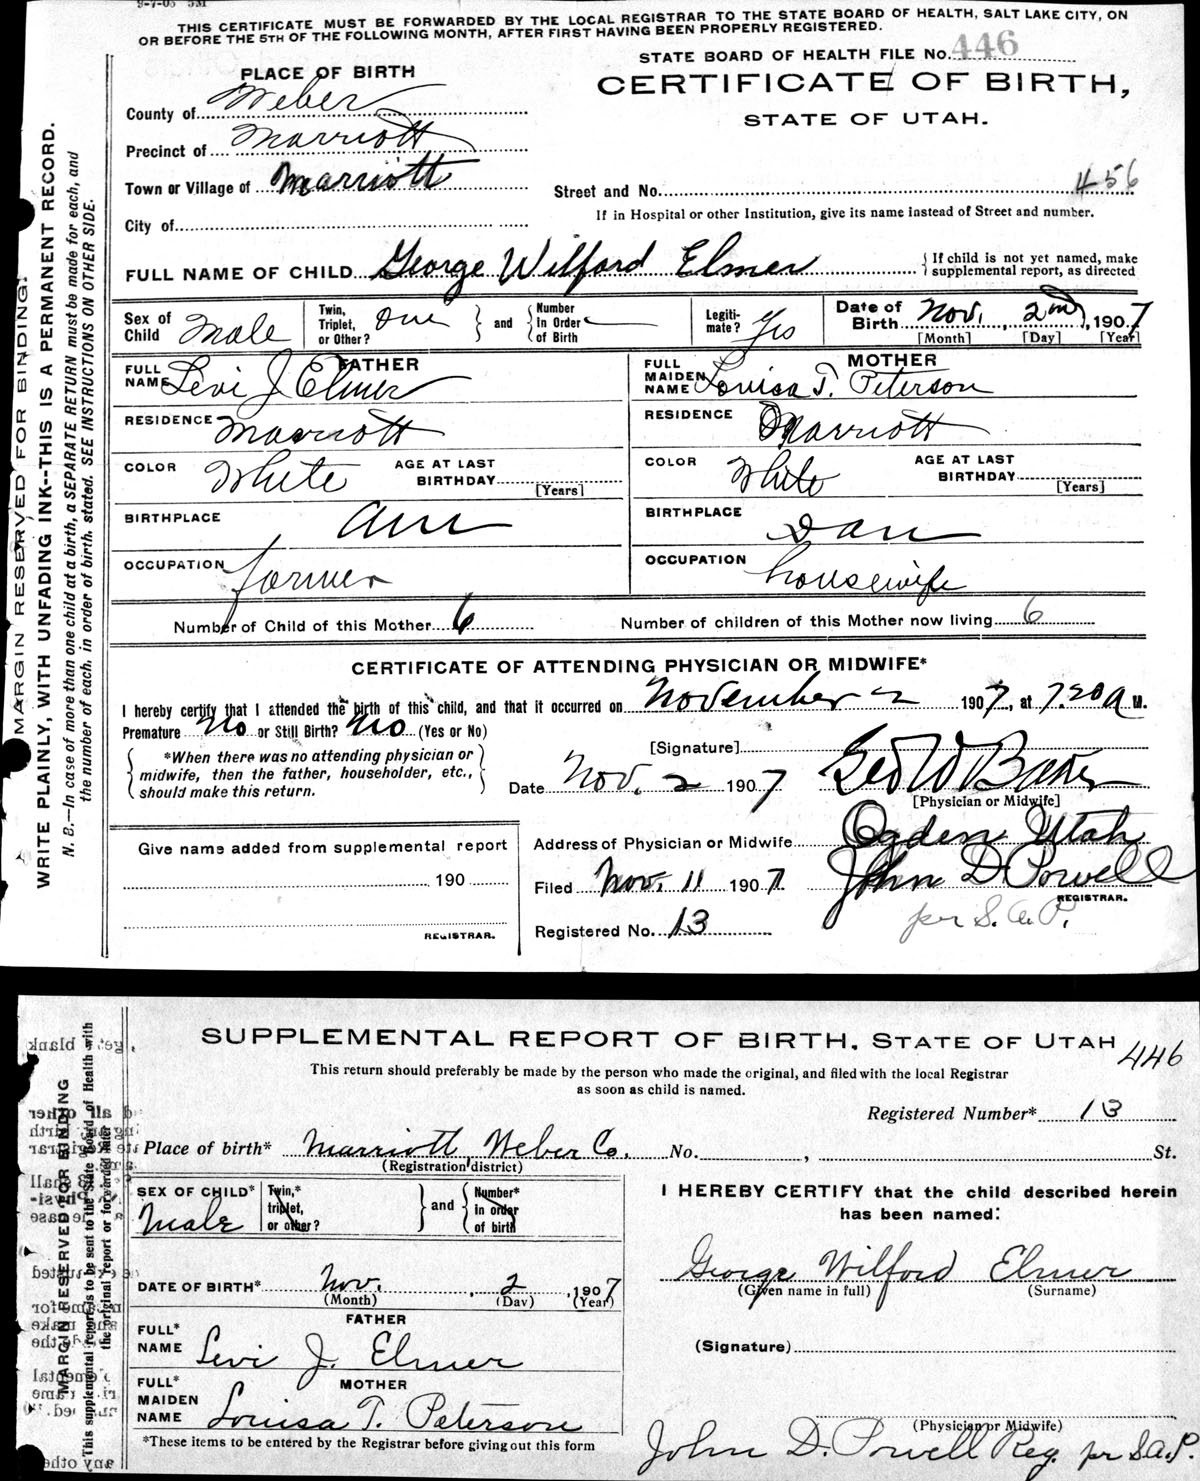 9-7-05 5M
THIS CERTIFICATE MUST BE FORWARDED BY THE LOCAL REGISTRAR TO THE STATE BOARD OF HEALTH, SALT LAKE CITY, ON
OR BEFORE THE 5TH OF THE FOLLOWING MONTH, AFTER FIRST HAVING BEEN PROPERLY REGISTERED.
STATE BOARD OF HEALTH FILE No. 446
PLACE OF BIRTH
CERTIFICATE OF BIRTH,
STATE OF UTAH.
County of Weber
Precinct of Marriott
Town or Village of Marriott
Street and No. 456
If in Hospital or other Institution, give its name instead of Street and number.
City of
FULL NAME OF CHILD George Wilford Elmer { If child is not yet named, make supplemental report, as directed
Sex of Child Male Twin, Triplet, or Other? One } and { Number in Order of Birth Legiti-mate? Yes Date of Birth Nov. 2nd, 1907
[Month] [Day] [Year]
FATHER
FULL NAME Levi J Elmer
RESIDENCE Marriott
COLOR White AGE AT LAST BIRTHDAY [Years]
BIRTHPLACE Am
OCCUPATION farmer
MOTHER
FULL MAIDEN NAME Louisa T. Peterson
RESIDENCE Marriott
COLOR White AGE AT LAST BIRTHDAY [Years]
BIRTHPLACE Dan
OCCUPATION housewife
Number of Child of this Mother 6 Number of children of this Mother now living 6
CERTIFICATE OF ATTENDING PHYSICIAN OR MIDWIFE*
I hereby certify that I attended the birth of this child, and that it occurred on November 2 1907, at 7.20 A M.
Premature No or Still Birth? No (Yes or No)
{ *When there was no attending physician or midwife, then the father, householder, etc., should make this return. }
[Signature] Geo W Baker
Date Nov. 2 1907
[Physician or Midwife]
Address of Physician or Midwife Ogden Utah
Filed Nov. 11 1907 John D Powell
REGISTRAR.
per S. A. P.
Registered No. 13
Give name added from supplemental report
190
REGISTRAR.
MARGIN RESERVED FOR BINDING.
WRITE PLAINLY, WITH UNFADING INK--THIS IS A PERMANENT RECORD.
N. B.—In case of more than one child at a birth, a SEPARATE RETURN must be made for each, and
the number of each, in order of birth, stated. SEE INSTRUCTIONS ON OTHER SIDE.
SUPPLEMENTAL REPORT OF BIRTH, STATE OF UTAH 446
This return should preferably be made by the person who made the original, and filed with the local Registrar
as soon as child is named.
Registered Number* 13
Place of birth* Marriott, Weber Co. No. , St.
(Registration district)
SEX OF CHILD* Male Twin,* triplet, or other? } and { Number* in order of birth
DATE OF BIRTH* Nov. 2, 1907
(Month) (Day) (Year)
FATHER
FULL* NAME Levi J. Elmer
MOTHER
FULL* MAIDEN NAME Louisa T. Peterson
*These items to be entered by the Registrar before giving out this form
I HEREBY CERTIFY that the child described herein
has been named:
George Wilford Elmer
(Given name in full) (Surname)
(Signature)
(Physician or Midwife)
John D. Powell Reg. per S.A.P.
MARGIN RESERVED FOR BINDING
This supplemental report is to be sent to the State Board of Health with
the original report or forwarded later